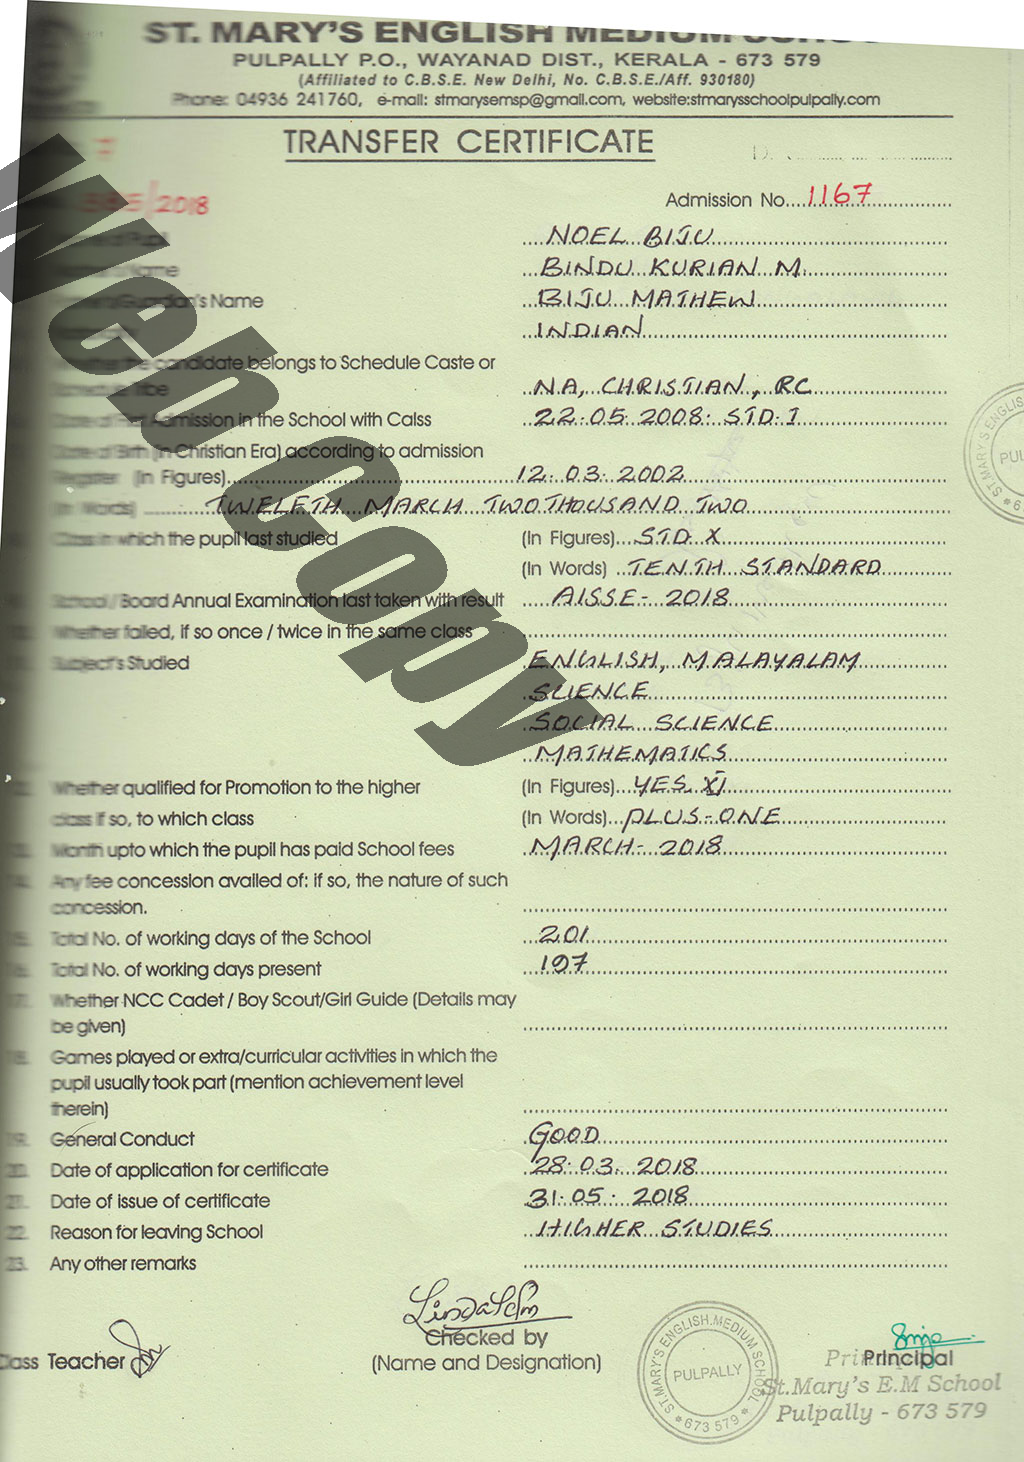 ST. MARY'S ENGLISH MEDIUM SCHOOL
PULPALLY P.O., WAYANAD DIST., KERALA - 673 579
(Affiliated to C.B.S.E. New Delhi, No. C.B.S.E./Aff. 930180)
Phone: 04936 241760, e-mail: stmarysemsp@gmail.com, website:stmarysschoolpulpally.com
TRANSFER CERTIFICATE
/2018 Admission No. 1167
Pupil NOEL BIJU
Name BINDU KURIAN M.
Guardian's Name BIJU MATHEW
INDIAN
the candidate belongs to Schedule Caste or
Tribe NA, CHRISTIAN, RC
Admission in the School with Calss 22.05.2008. STD.I
Date of Birth (in Christian Era) according to admission
Register (In Figures) 12.03.2002
(In Words) TWELFTH MARCH TWO THOUSAND TWO
Class in which the pupil last studied (In Figures) STD X
(In Words) TENTH STANDARD
School / Board Annual Examination last taken with result AISSE- 2018
Whether failed, if so once / twice in the same class
11. Subject's Studied ENGLISH, MALAYALAM
SCIENCE
SOCIAL SCIENCE
MATHEMATICS
12. Whether qualified for Promotion to the higher (In Figures) YES. XI
class if so, to which class (In Words) PLUS-ONE
13. Month upto which the pupil has paid School fees MARCH- 2018
14. Any fee concession availed of: if so, the nature of such
concession.
15. Total No. of working days of the School 201
16. Total No. of working days present 197
17. Whether NCC Cadet / Boy Scout/Girl Guide (Details may
be given)
18. Games played or extra/curricular activities in which the
pupil usually took part (mention achievement level
therein)
19. General Conduct GOOD
20. Date of application for certificate 28.03.2018
21. Date of issue of certificate 31.05.2018
22. Reason for leaving School HIGHER STUDIES
23. Any other remarks
Checked by
Class Teacher (Name and Designation) Principal
ST.MARY'S ENGLISH.MEDIUM SCHOOL PULPALLY * 673 579 *
Principal
St.Mary's E.M School
Pulpally - 673 579
Web Copy